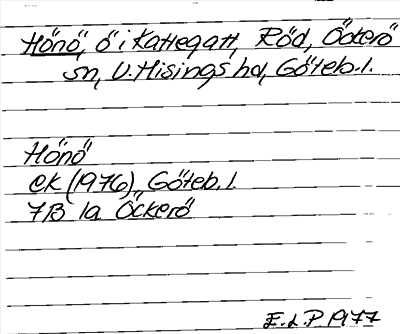 Hönö, ö i Kattegatt, Röd, Öckerö
sn, V. Hisings hd, Göteb. l.
Hönö
ek (1976), Göteb. l.
7B 1a Öckerö
E. L. P. 1977